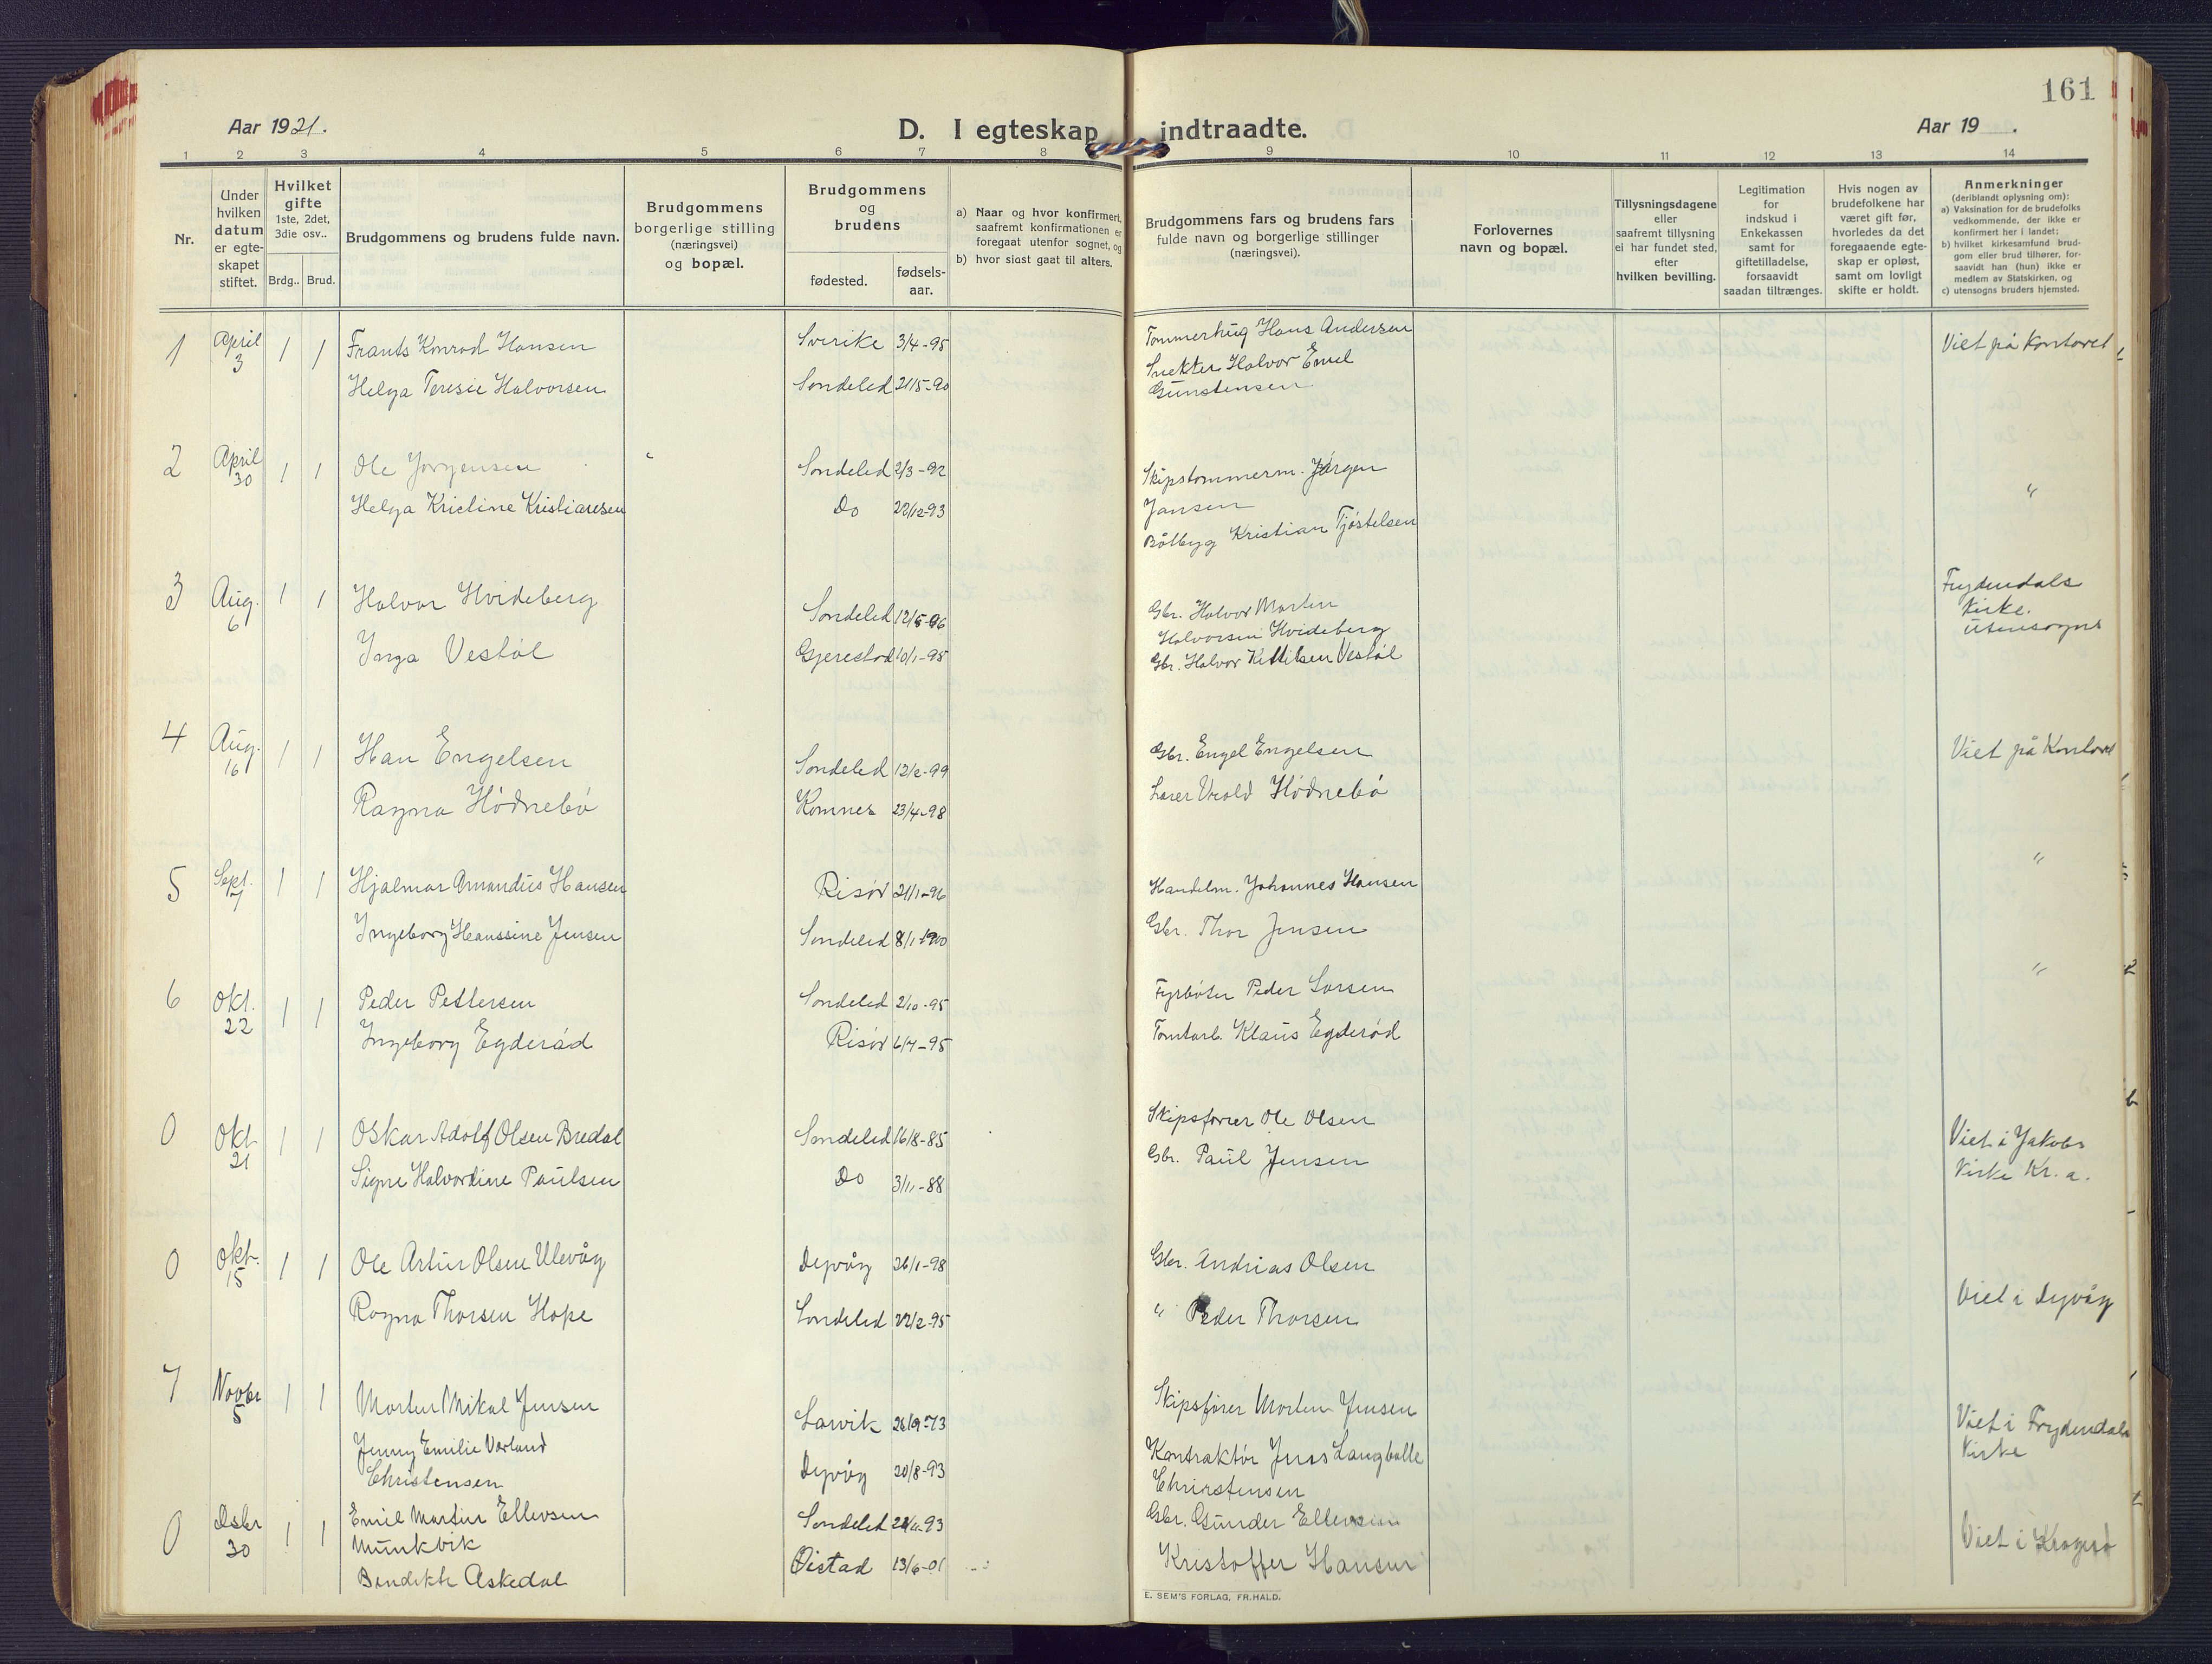 161
Aar 1921.
D. I egteskap indtraadte.
Aar 19 .
1 2 3 4 5 6 7 8 9 10 11 12 13 14
Nr.
Under hvilken datum er egteskapet stiftet.
Hvilket gifte
1ste, 2det, 3die osv..
Brdg.. Brud.
Brudgommens og brudens fulde navn.
Brudgommens borgerlige stilling (næringsvei) og bopæl.
Brudgommens og brudens
fødested.
fødsels-aar.
a) Naar og hvor konfirmert, saafremt konfirmationen er foregaat utenfor sognet, og
b) hvor sidst gaat til alters.
Brudgommens fars og brudens fars fulde navn og borgerlige stillinger (næringsvei).
Forlovernes navn og bopæl.
Tillysningsdagene eller saafremt tillysning ei har fundet sted, efter hvilken bevilling.
Legitimation for indskud i Enkekassen samt for giftetilladelse, forsaavidt saadan tiltrænges.
Hvis nogen av brudefolkene har været gift før, hvorledes da det foregaaende egteskap er opløst, samt om lovligt skifte er holdt.
Anmerkninger
(deriblandt oplysning om):
a) Vaksination for de brudefolks vedkommende, der ikke er konfirmert her i landet;
b) hvilket kirkesamfund brudgom eller brud tilhører, forsaavidt han (hun) ikke er medlem av Statskirken, og
c) utensogns bruders hjemsted.
1 April 3 1 1 Frants Konrad Hansen Sverike 3/4-95 Tømmerhug Hans Andersen Viet på Kontoret
Helga Teresie Halvorsen Søndeled 21/5-90 Snekker Halvor Emil
Gunstensen
2 April 30 1 1 Ole Jørgensen Søndeled 2/3-92 Skipstømmerm. Jørgen
Jansen
Helga Kristine Kristiansen Do 22/12-93 Båtbyg Kristian Tjøstelsen "
3 Aug. 6 1 1 Halvor Hvideberg Søndeled 12/5-96 Gbr. Halvor Martin
Halvorsen Hvideberg
Inga Vestøl Gjerestad 10/1-95 Gbr. Halvor Kittilsen Vestøl
Frydendals
Kirke.
Utensogns
4 Aug. 16 1 1 Han Engelsen Søndeled 12/2-99 Gbr. Engel Engelsen Viet på Kontoret
Ragna Hødnebø Komnes 23/4-98 Lærer Vrold Hødnebø
5 Sept. 7 1 1 Hjalmar Amandus Hansen Risør 21/1-96 Handelsm. Johannes Hansen "
Ingeborg Hanssine Jensen Søndeled 8/1-1900 Gbr. Thor Jensen
6 Okt. 22 1 1 Peder Pettersen Søndeled 2/10-95 Fyrbøter Peder Larsen "
Ingeborg Egderød Risør 6/7-95 Tomtarb. Klaus Egderød
0 Okt 21 1 1 Oskar Adolf Olsen Bredal Søndeled 16/8-85 Skipsfører Ole Olsen
Signe Halvordine Paulsen Do 3/11-88 Gbr. Paul Jensen
Viet i Jakobs
Kirke Kr. a.
0 Okt. 15 1 1 Ole Artur Olsen Ulevåg Dypvåg 26/1-98 Gbr. Andrias Olsen
Ragna Thorsen Hope Søndeled 22/2-95 " Peder Thorsen
Viet i Dypvåg
7 Novbr 5 1 1 Morten Mikal Jensen Larvik 26/9-73 Skipsfører Morten Jensen
Jenny Emilie Værland
Christensen Dypvåg 20/8-93 Kontraktør Jens Langballe
Christensen
Viet i Frydendals
Kirke
0 Dsbr 30 1 1 Emil Martin Ellevsen
Munkvik Søndeled -93 Gbr. Gunder Ellevsen
Bendikte Askedal Øistad 13/6-01 Kristoffer Hansen
Viet i Kragerø
E. SEM'S FORLAG, FR.HALD.